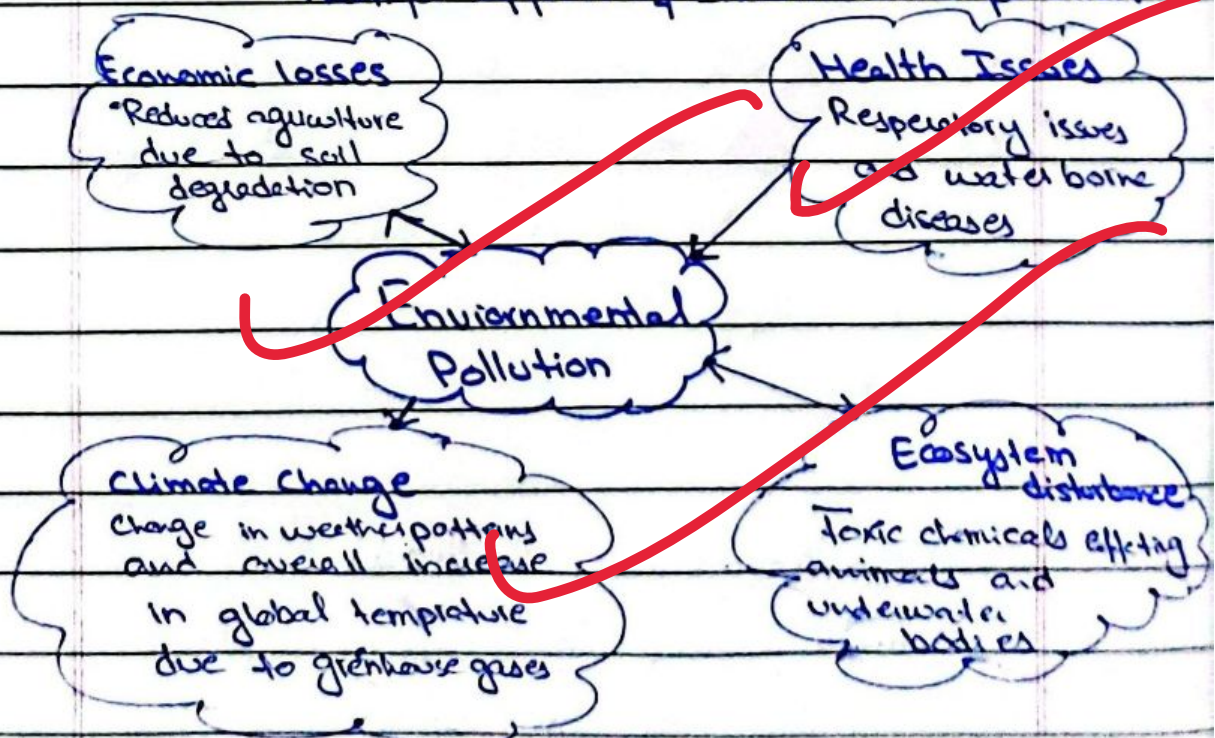 Economic losses
•Reduced aguculture
due to soil
degredation
Health Issues
Resperatory issues
and waterborne
diseases
Enviornmental
Pollution
Climate Change
Change in weather pattans
and overall increase
in global temprature
due to grenhouse gases
Ecosystem
disturbance
Toxic chemicals effcting
animals and
underwater
bodies